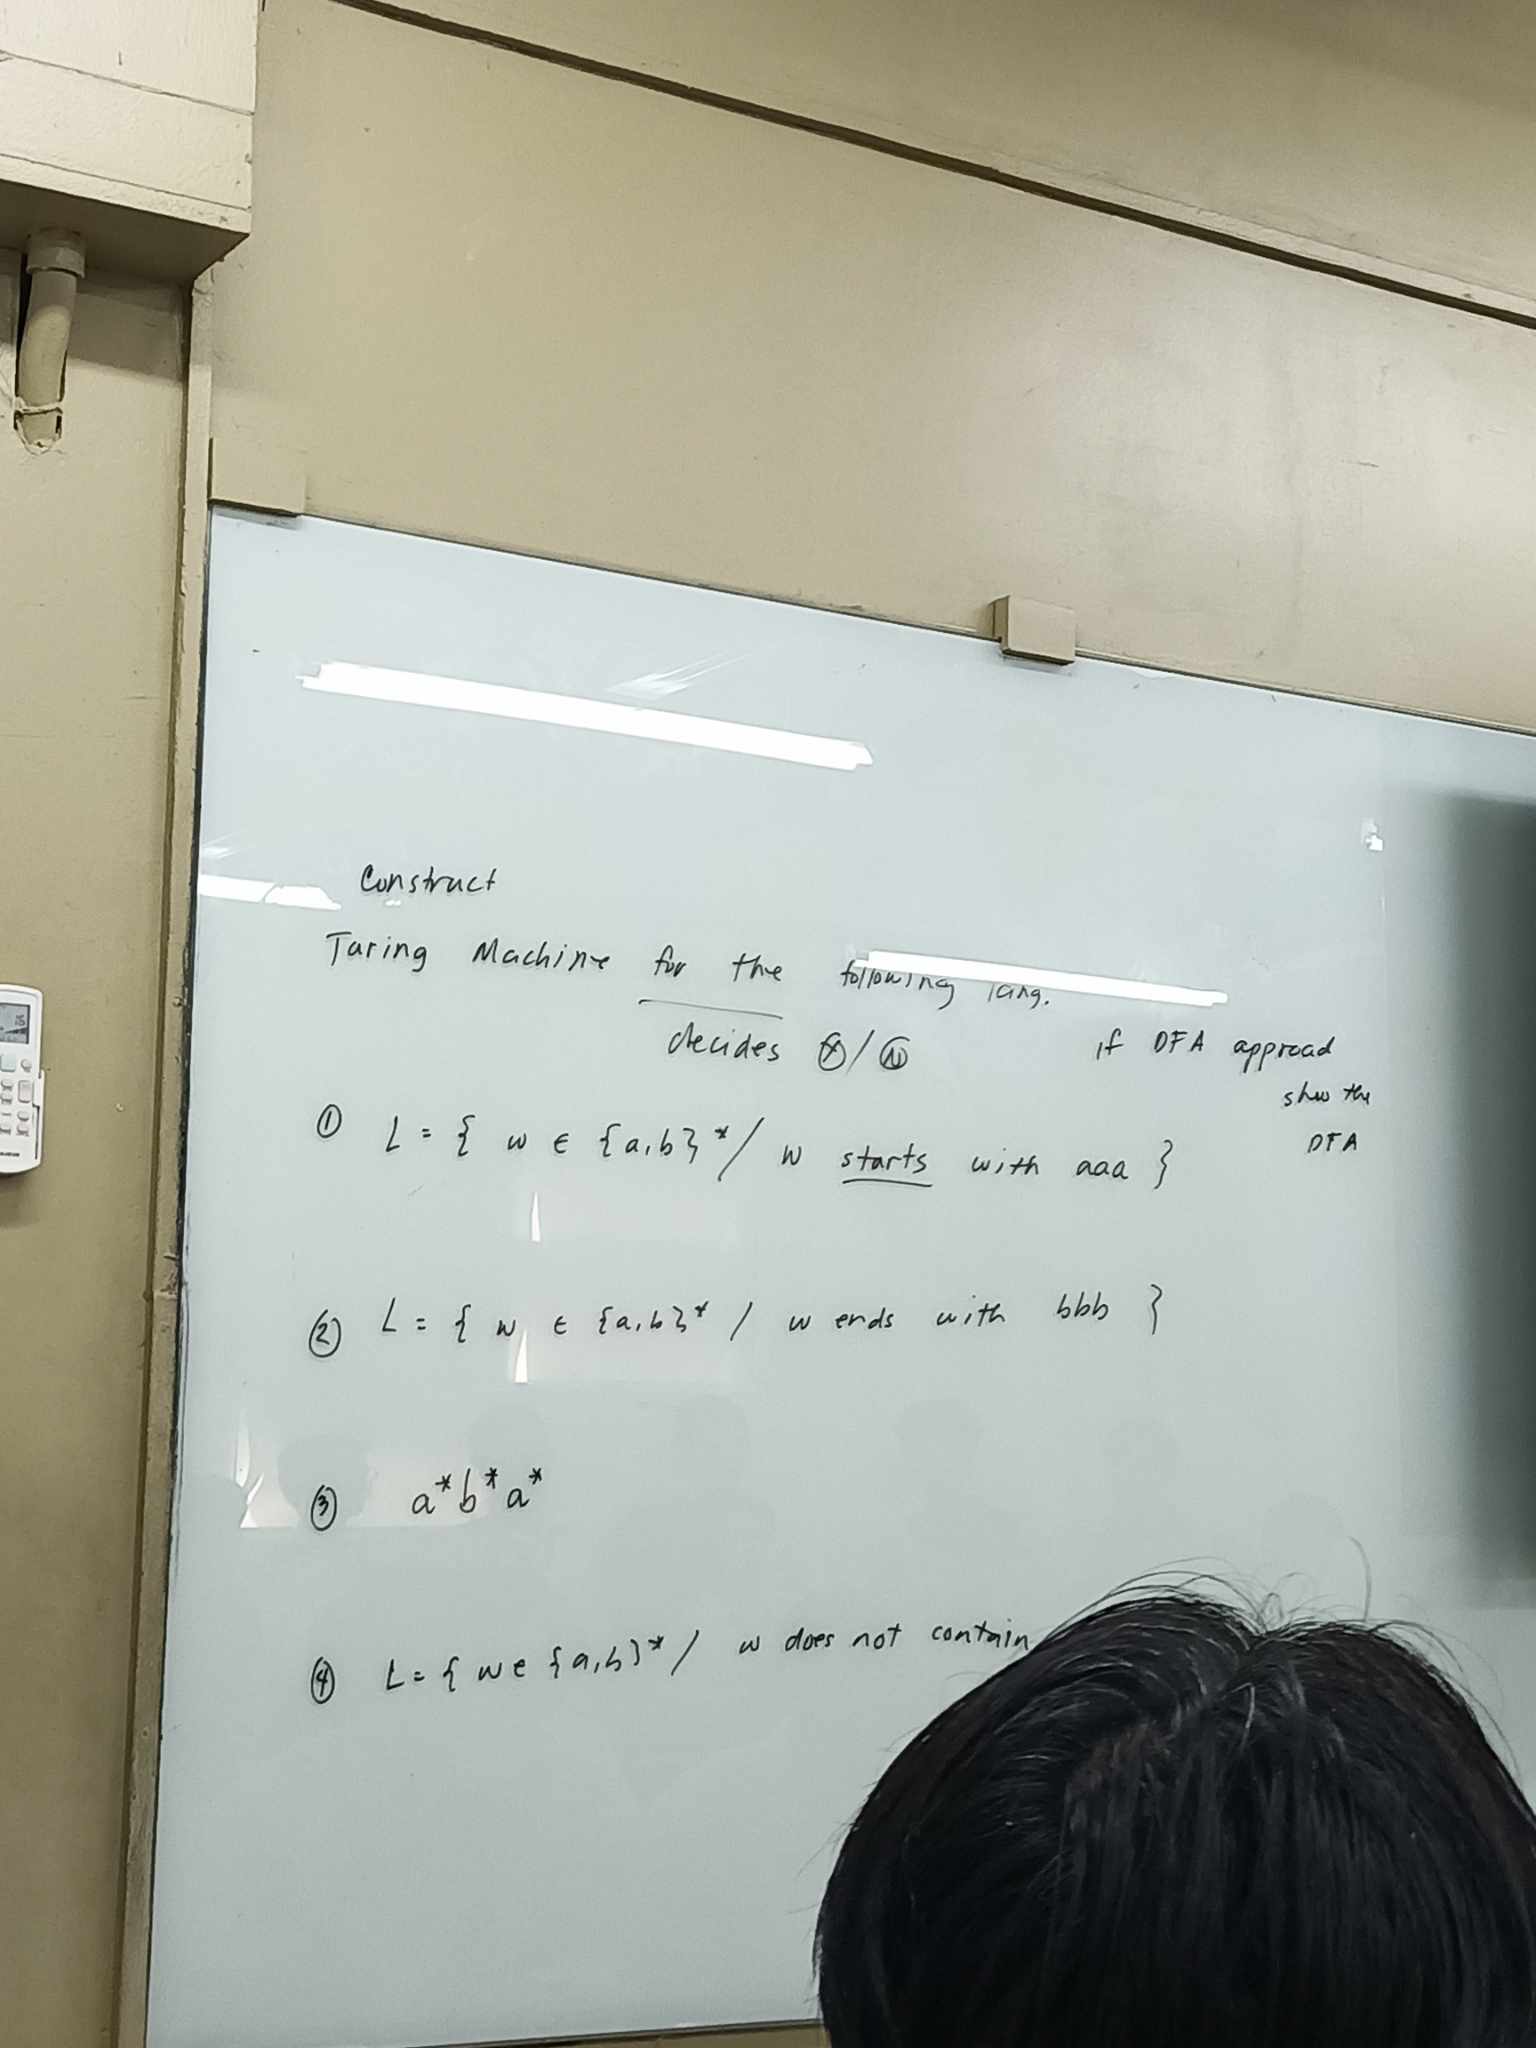 Construct
Turing Machine for the following lang.
decides Ⓨ/Ⓝ if DFA approach
show the
DFA
① L = { w ∈ {a,b}* / w starts with aaa }
② L = { w ∈ {a,b}* / w ends with bbb }
③ a*b*a*
④ L = { w ∈ {a,b}* / w does not contain